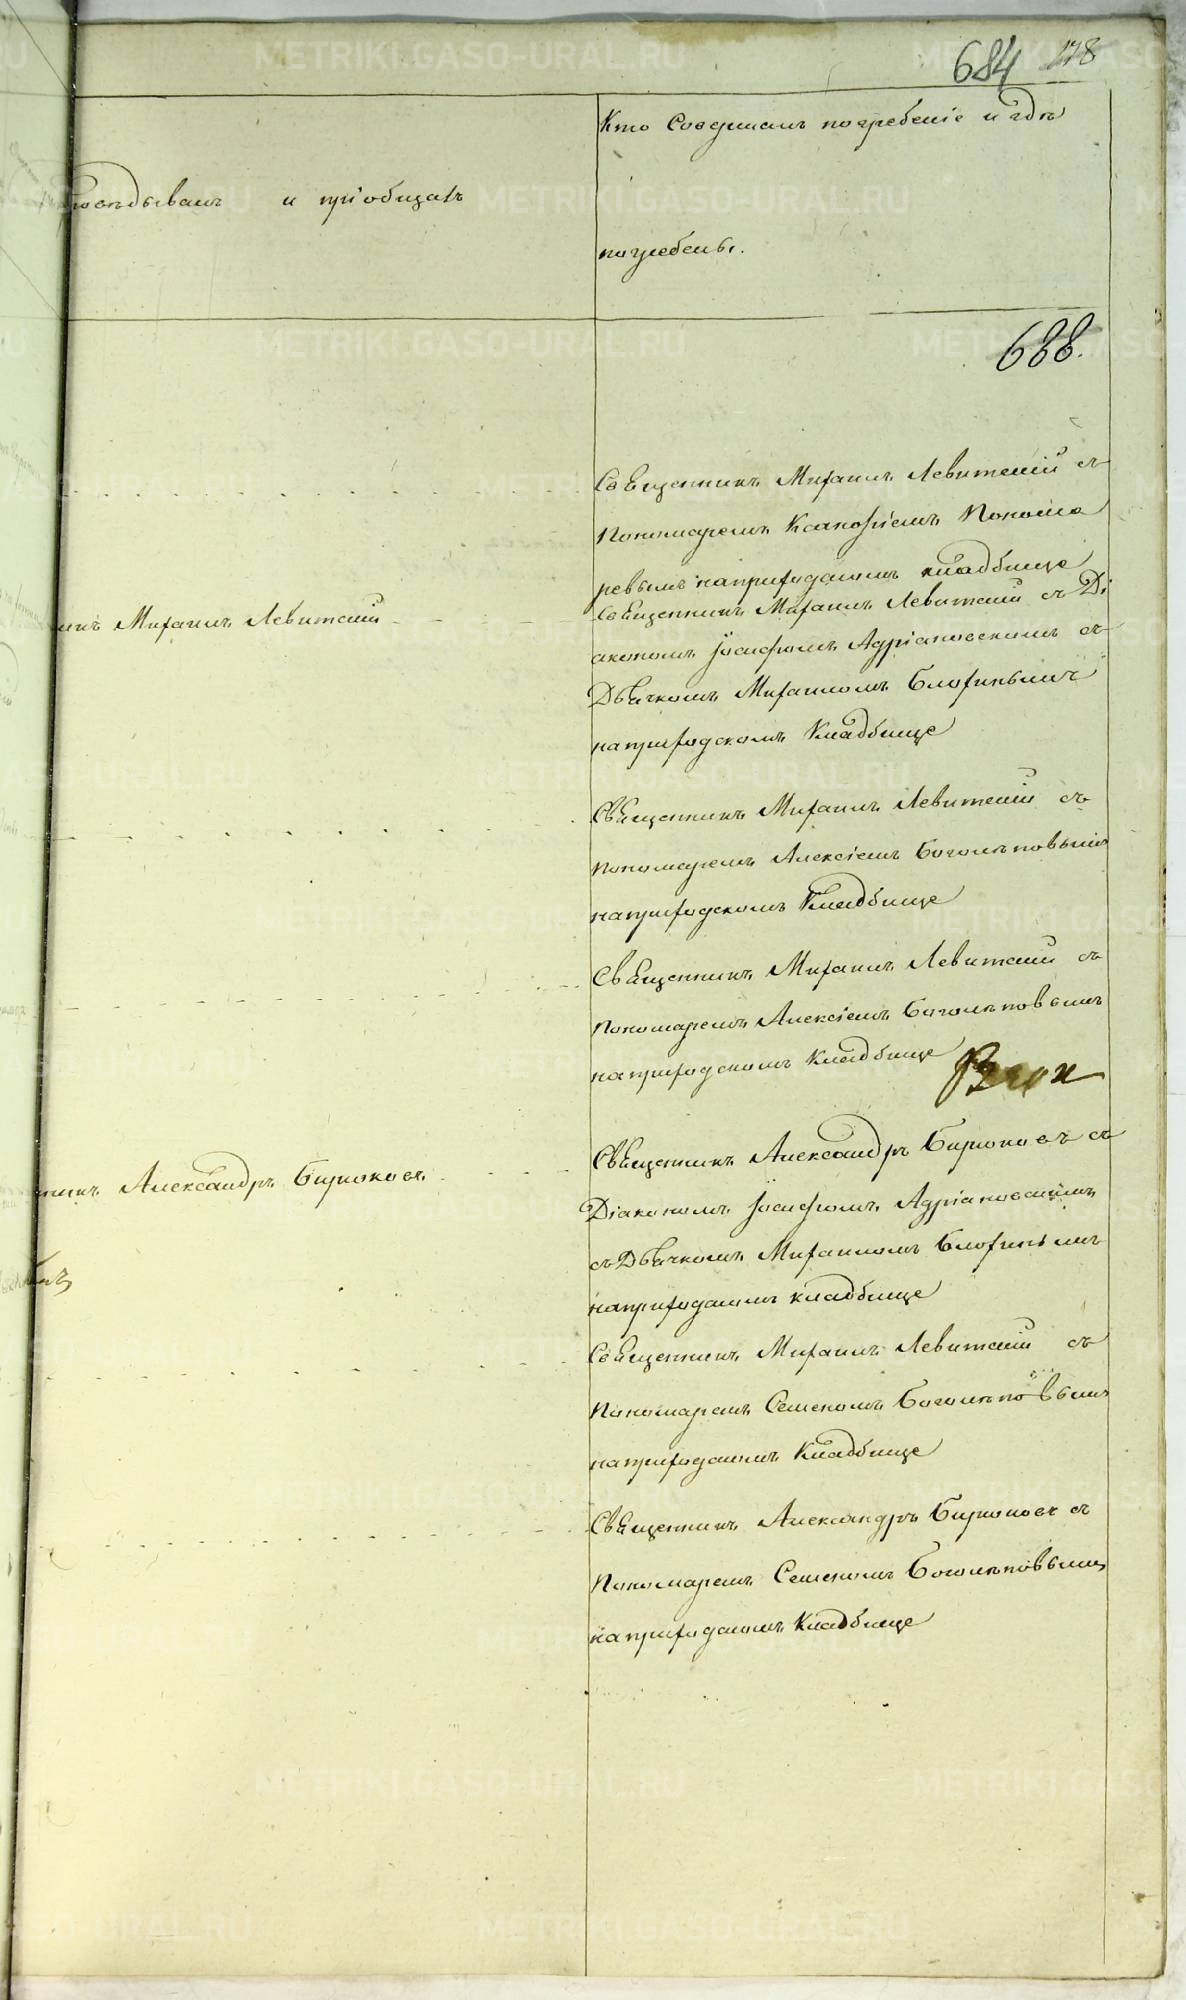 684 178
Кто Совершалъ погребеніе и гдѣ
и пріобщалъ
погребены.
688.
Священникъ Михаилъ Левитскій съ
Пономаремъ Ксанофіемъ Понома
ревымъ на приходскомъ кладбище
Священникъ Михаилъ Левитскій съ Ді
икъ Михаилъ Левитскій
акономъ Іосифомъ Адріановскимъ съ
Дьячкомъ Михаиломъ Блохинымъ
на приходскомъ Кладбище
Священникъ Михаилъ Левитскій съ
пономаремъ Алексіемъ Боголѣповымъ
на приходскомъ Кладбище
Священникъ Михаилъ Левитскій съ
пономаремъ Алексіемъ Боголѣповымъ
на приходскомъ Кладбище
Священникъ Александръ Бирюковъ съ
никъ Александръ Бирюковъ
Діакономъ Іосифомъ Адріановскимъ
съ Дьячкомъ Михаиломъ Блохинымъ
на приходскомъ кладбище
Священникъ Михаилъ Левитскій съ
Пономаремъ Семеномъ Боголѣповымъ
на приходскомъ Кладбище
Священникъ Александръ Бирюковъ съ
Пономаремъ Семеномъ Боголѣповымъ
на приходскомъ Кладбище